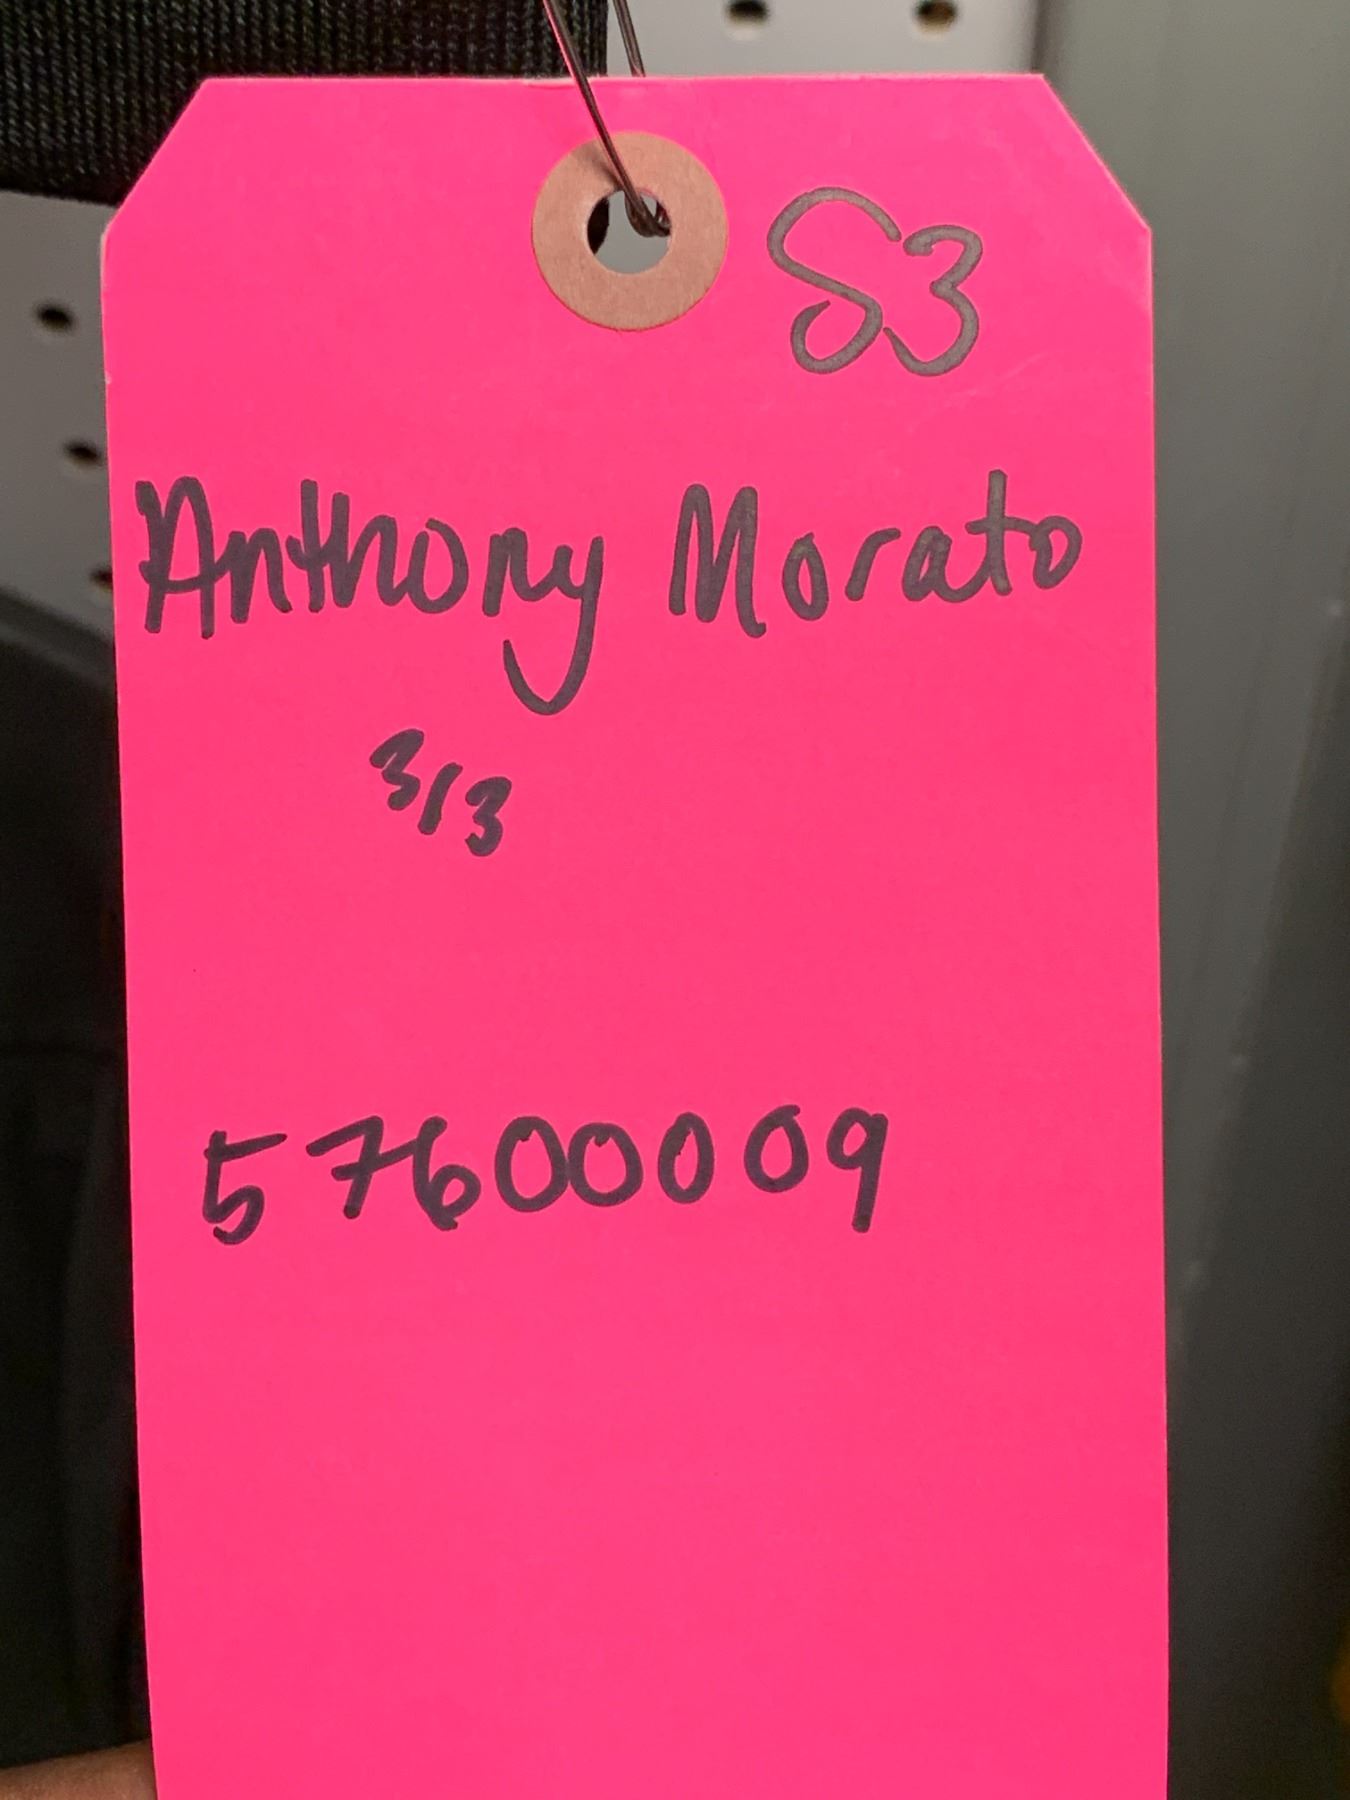 S3
Anthony Morato
3/3
57600009